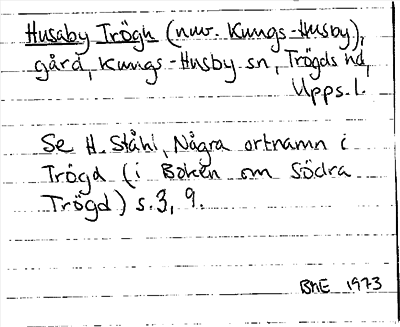 Husaby Trögh (nuv. Kungs-Husby),
gård, Kungs-Husby sn, Trögds hd,
Upps. l.
Se H. Ståhl, Några ortnamn i
Trögd (i Boken om Södra
Trögd) s. 3, 9.
BhE 1973